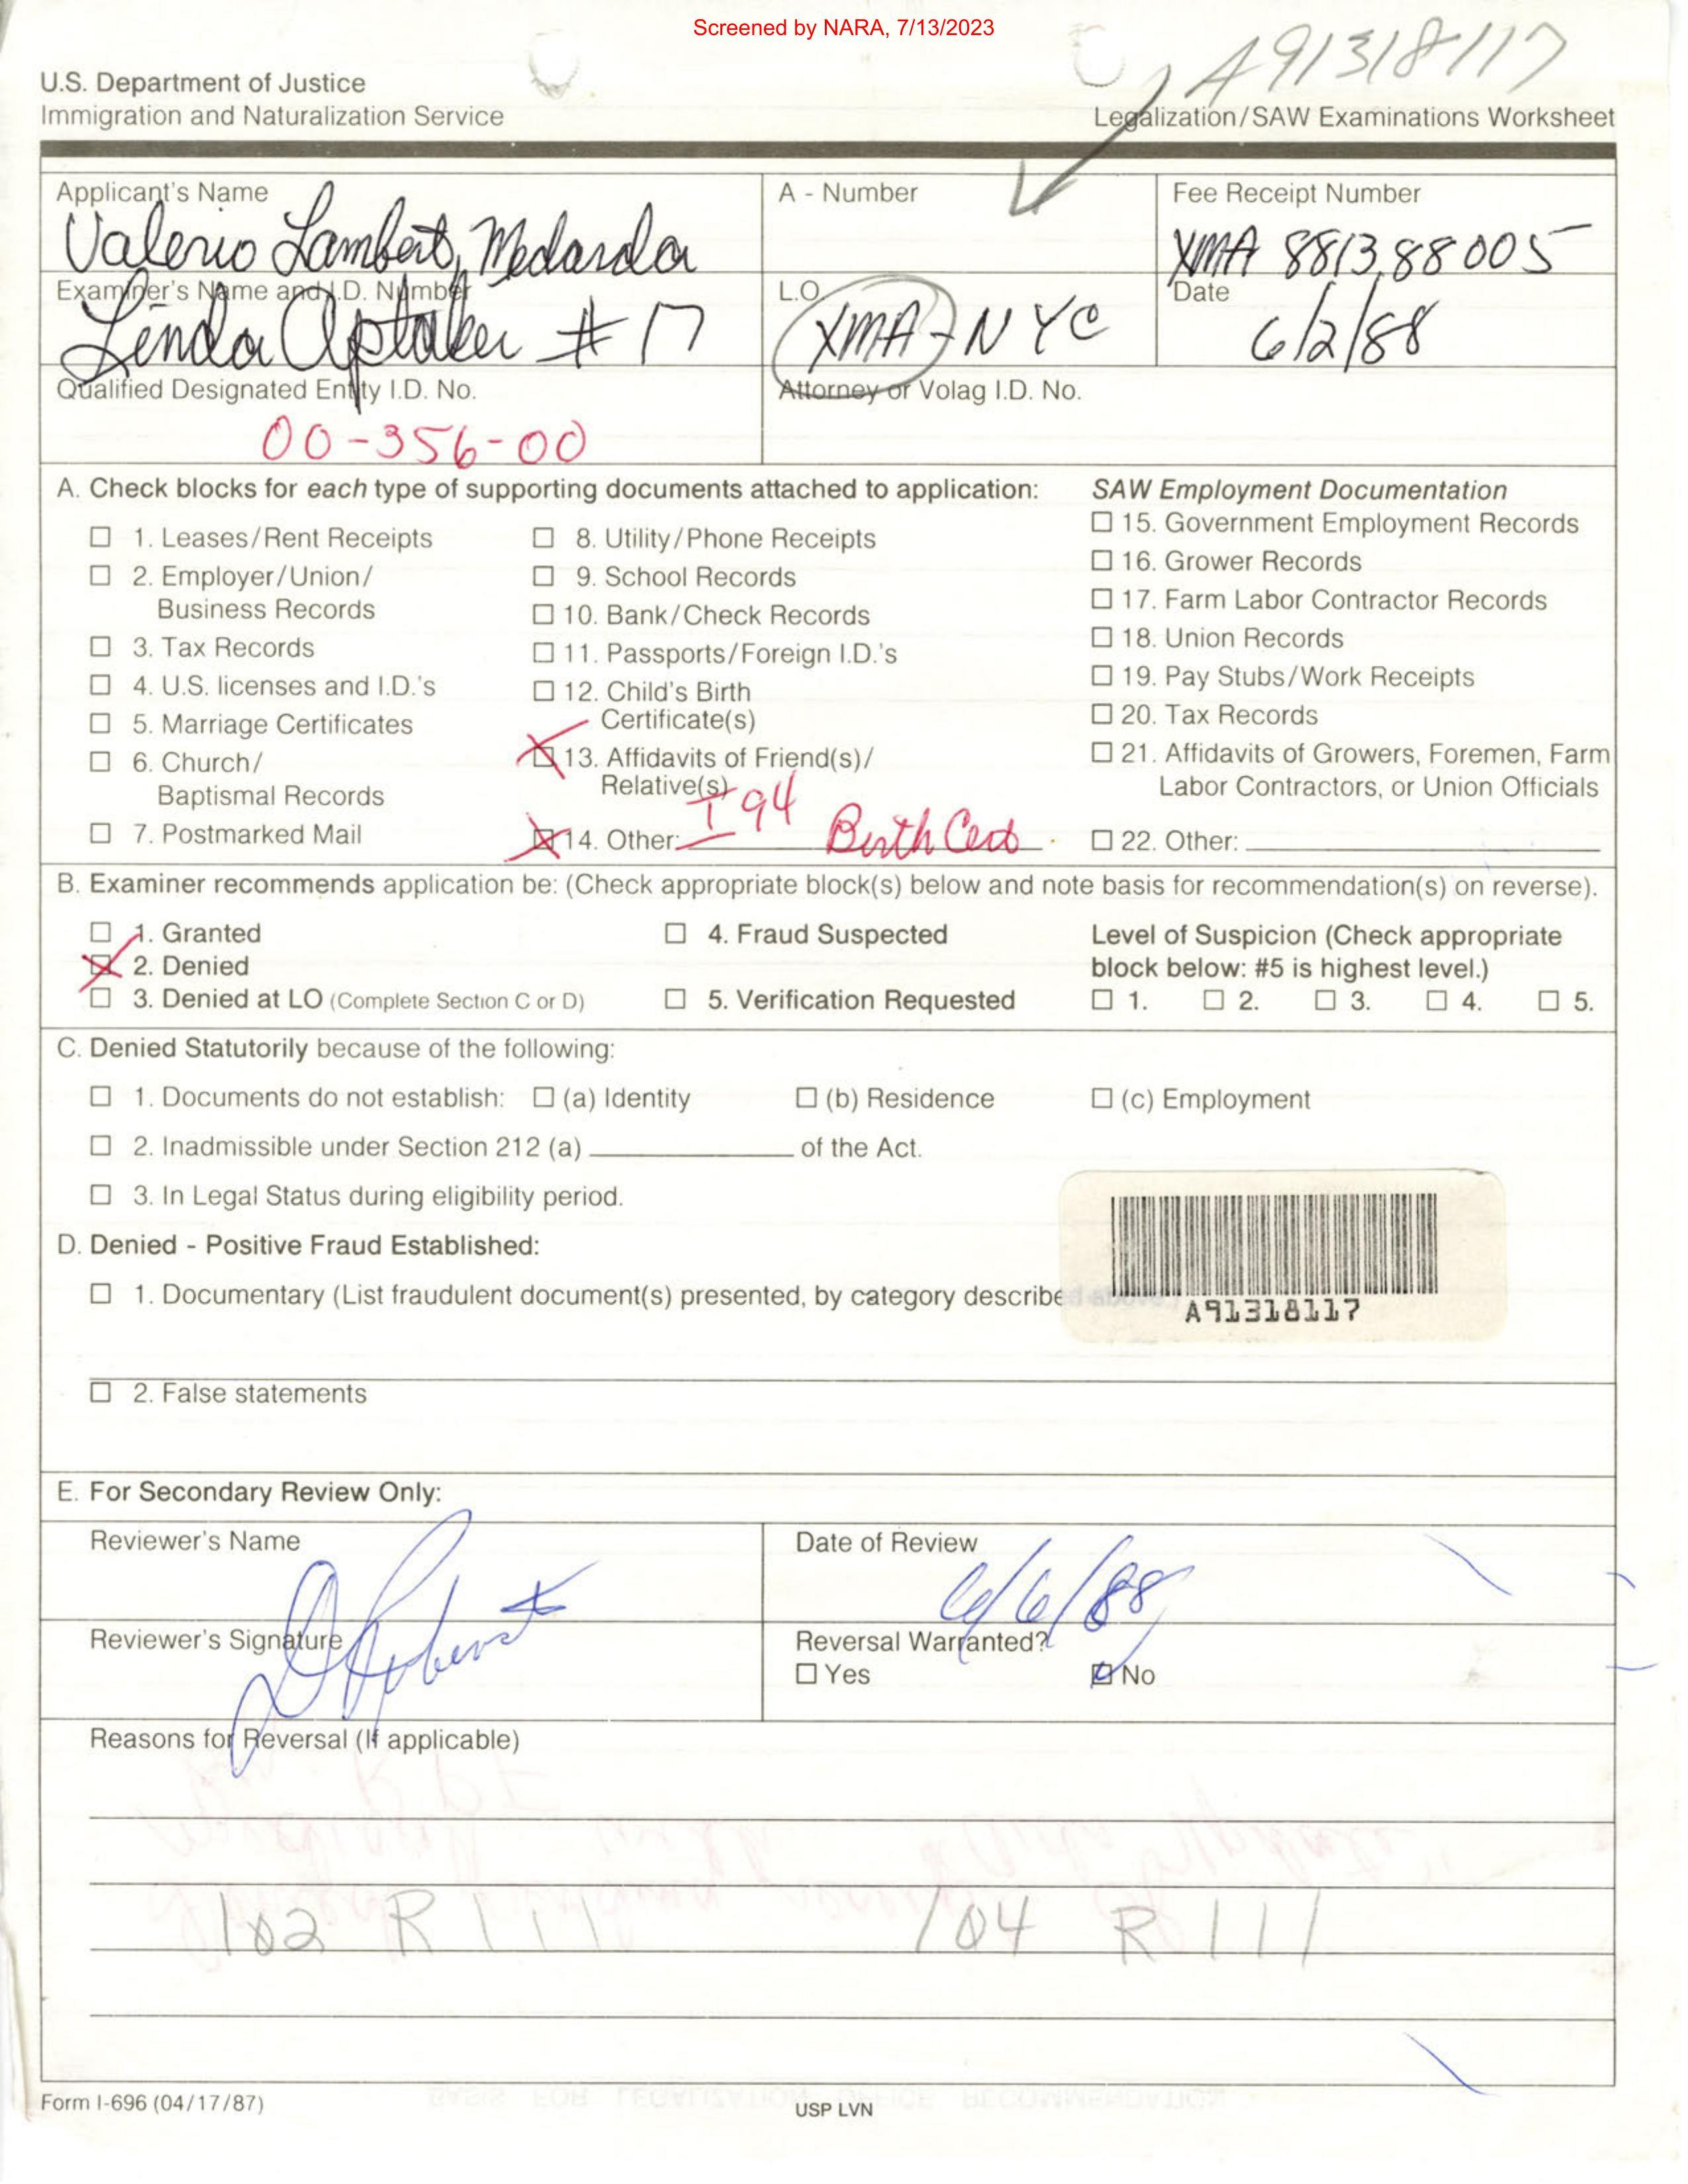 Screened by NARA, 7/13/2023
A91318117
U.S. Department of Justice
Immigration and Naturalization Service
Legalization/SAW Examinations Worksheet
Applicant's Name
Valerio Lambert, Medarda
A - Number
Fee Receipt Number
XMA 881388005
Examiner's Name and I.D. Number
Linda Aptaker # 17
L.O.
XMA-NYC
Date
6/2/88
Qualified Designated Entity I.D. No.
00-356-00
Attorney or Volag I.D. No.
A. Check blocks for each type of supporting documents attached to application:
☐ 1. Leases/Rent Receipts
☐ 2. Employer/Union/
Business Records
☐ 3. Tax Records
☐ 4. U.S. licenses and I.D.'s
☐ 5. Marriage Certificates
☐ 6. Church/
Baptismal Records
☐ 7. Postmarked Mail
☐ 8. Utility/Phone Receipts
☐ 9. School Records
☐ 10. Bank/Check Records
☐ 11. Passports/Foreign I.D.'s
☐ 12. Child's Birth
Certificate(s)
☒ 13. Affidavits of Friend(s)/
Relative(s)
☒ 14. Other: I 94 Birth Cert.
SAW Employment Documentation
☐ 15. Government Employment Records
☐ 16. Grower Records
☐ 17. Farm Labor Contractor Records
☐ 18. Union Records
☐ 19. Pay Stubs/Work Receipts
☐ 20. Tax Records
☐ 21. Affidavits of Growers, Foremen, Farm
Labor Contractors, or Union Officials
☐ 22. Other:
B. Examiner recommends application be: (Check appropriate block(s) below and note basis for recommendation(s) on reverse).
☐ 1. Granted
☒ 2. Denied
☐ 3. Denied at LO (Complete Section C or D)
☐ 4. Fraud Suspected
☐ 5. Verification Requested
Level of Suspicion (Check appropriate
block below: #5 is highest level.)
☐ 1. ☐ 2. ☐ 3. ☐ 4. ☐ 5.
C. Denied Statutorily because of the following:
☐ 1. Documents do not establish: ☐ (a) Identity ☐ (b) Residence ☐ (c) Employment
☐ 2. Inadmissible under Section 212 (a) of the Act.
☐ 3. In Legal Status during eligibility period.
D. Denied - Positive Fraud Established:
☐ 1. Documentary (List fraudulent document(s) presented, by category describe
A91318117
☐ 2. False statements
E. For Secondary Review Only:
Reviewer's Name
Date of Review
6/6/88
Reviewer's Signature
Reversal Warranted?
☐ Yes ☒ No
Reasons for Reversal (If applicable)
102 R 111 104 R 111
Form I-696 (04/17/87)
USP LVN